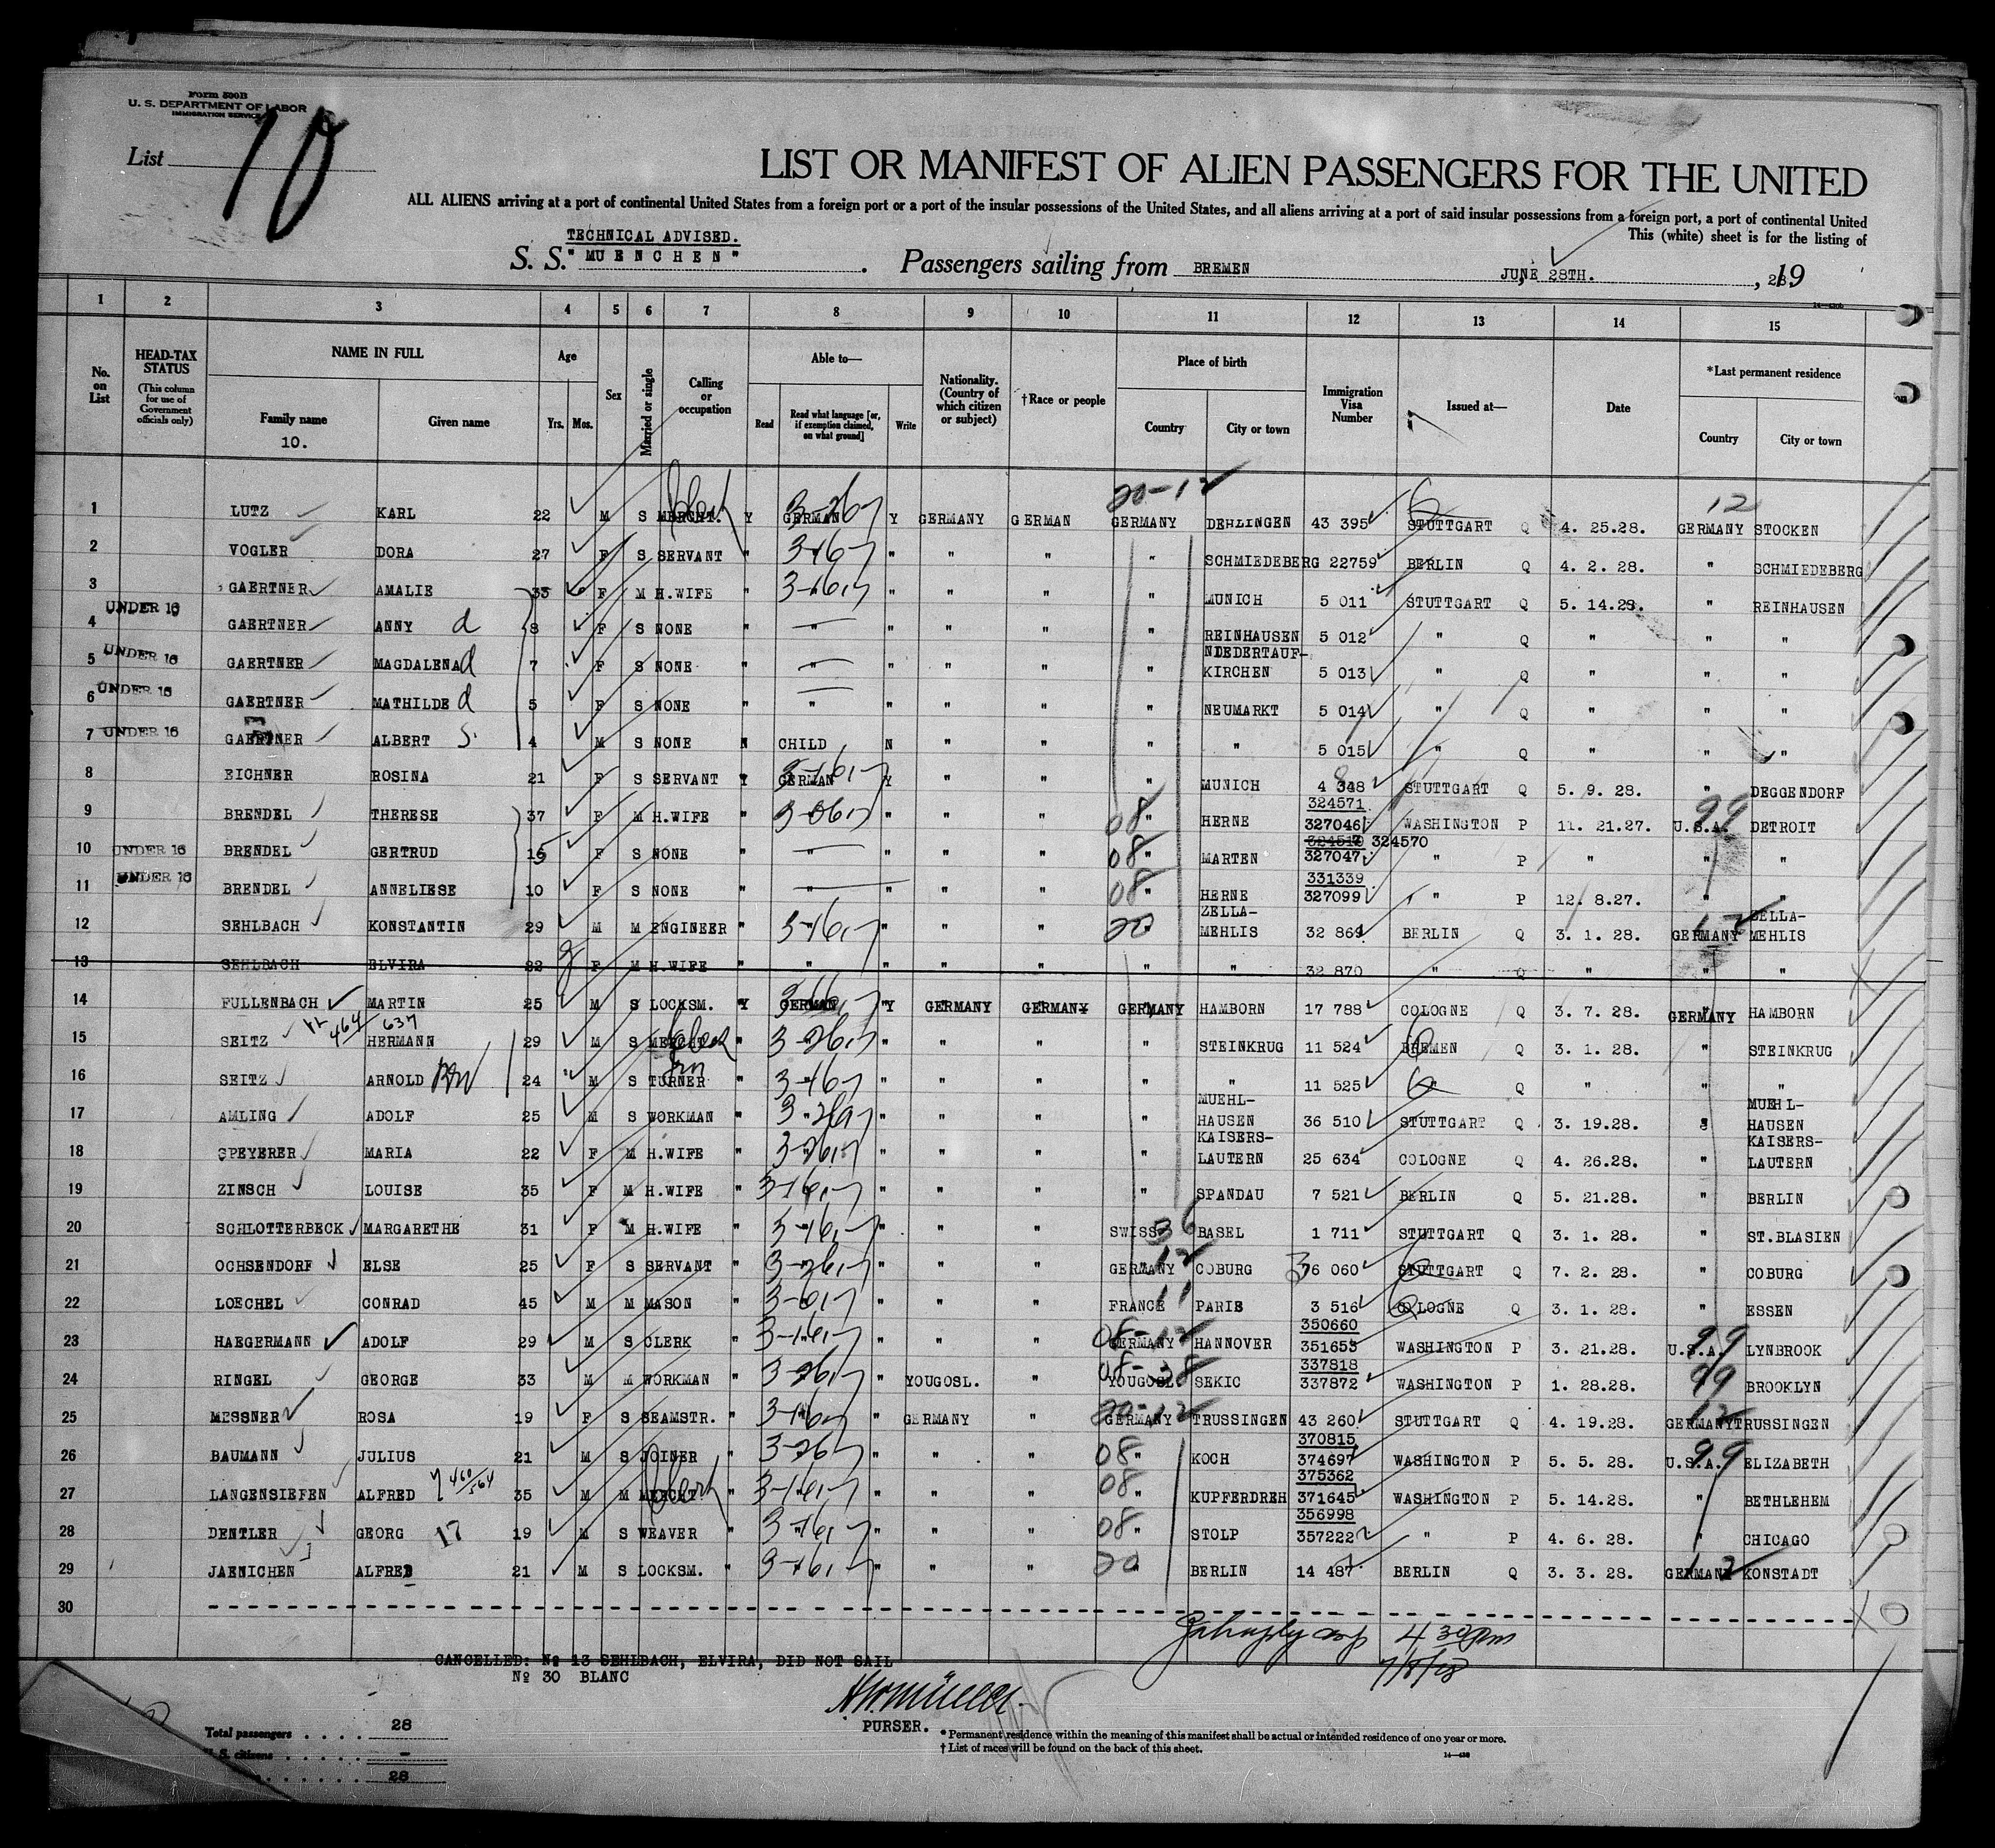 Form 500B
U. S. DEPARTMENT OF LABOR
IMMIGRATION SERVICE
List 10
LIST OR MANIFEST OF ALIEN PASSENGERS FOR THE UNITED
ALL ALIENS arriving at a port of continental United States from a foreign port or a port of the insular possessions of the United States, and all aliens arriving at a port of said insular possessions from a foreign port, a port of continental United
This (white) sheet is for the listing of
TECHNICAL ADVISED.
S. S. "MUENCHEN". Passengers sailing from BREMEN JUNE 28TH., 28 19
1 2 3 4 5 6 7 8 9 10 11 12 13 14 15
No. on List HEAD-TAX STATUS (This column for use of Government officials only) NAME IN FULL Family name 10. Given name Age Yrs. Mos. Sex Married or single Calling or occupation Able to— Read Read what language [or, if exemption claimed, on what ground] Write Nationality. (Country of which citizen or subject) †Race or people Place of birth Country City or town Immigration Visa Number Issued at— Date *Last permanent residence Country City or town
20-12 12
1 LUTZ KARL 22 M S MERCHT. Y GERMAN Y GERMANY GERMAN GERMANY DEHLINGEN 43 395 STUTTGART Q 4. 25.28. GERMANY STOCKEN
2 VOGLER DORA 27 F S SERVANT " " " " " SCHMIEDEBERG 22759 BERLIN Q 4. 2. 28. " SCHMIEDEBERG
3 GAERTNER AMALIE 35 F M H.WIFE " " " " " MUNICH 5 011 STUTTGART Q 5. 14.28. " REINHAUSEN
UNDER 16
4 GAERTNER ANNY d 8 F S NONE " " " " " " REINHAUSEN 5 012 " Q " " "
UNDER 16 NDEDERTAUF-
5 GAERTNER MAGDALENA d 7 F S NONE " " " " " " KIRCHEN 5 013 " Q " " "
UNDER 16
6 GAERTNER MATHILDE d 5 F S NONE " " " " " " NEUMARKT 5 014 " Q " " "
7 UNDER 16 GAERTNER ALBERT S. 4 M S NONE N CHILD N " " " " 5 015 " Q " " "
8 EICHNER ROSINA 21 F S SERVANT Y GERMAN Y " " " MUNICH 4 348 STUTTGART Q 5. 9. 28. " DEGGENDORF
324571
9 BRENDEL THERESE 37 F M H.WIFE " " " " 08 " HERNE 327046 WASHINGTON P 11. 21.27. U.S.A. 99 DETROIT
324570
10 UNDER 16 BRENDEL GERTRUD 15 F S NONE " " " " " 08 " MARTEN 327047 " P " " "
UNDER 16 331339
11 BRENDEL ANNELIESE 10 F S NONE " " " " " 08 " HERNE 327099 " P 12. 8.27. " "
ZELLA- ZELLA-
12 SEHLBACH KONSTANTIN 29 M M ENGINEER " " " " 20 MEHLIS 32 869 BERLIN Q 3. 1. 28. GERMANY MEHLIS
13 SEHLBACH ELVIRA 22 F M H.WIFE " " " " " " " 32 870 " Q " " "
14 FULLENBACH MARTIN 25 M S LOCKSM. Y GERMAN Y GERMANY GERMANY GERMANY HAMBORN 17 788 COLOGNE Q 3. 7. 28. GERMANY HAMBORN
464 637
15 SEITZ HERMANN 29 M S MERCHT " " " " " STEINKRUG 11 524 BREMEN Q 3. 1. 28. " STEINKRUG
16 SEITZ ARNOLD 24 M S TURNER " " " " " " 11 525 " Q " " "
MUEHL- MUEHL-
17 AMLING ADOLF 25 M S WORKMAN " " " " " HAUSEN 36 510 STUTTGART Q 3. 19.28. " HAUSEN
KAISERS- KAISERS-
18 SPEYERER MARIA 22 F M H.WIFE " " " " " LAUTERN 25 634 COLOGNE Q 4. 26.28. " LAUTERN
19 ZINSCH LOUISE 35 F M H.WIFE " " " " " SPANDAU 7 521 BERLIN Q 5. 21.28. " BERLIN
20 SCHLOTTERBECK MARGARETHE 31 F M H.WIFE " " " " SWISS 36 BASEL 1 711 STUTTGART Q 3. 1. 28. " ST.BLASIEN
21 OCHSENDORF ELSE 25 F S SERVANT " " " " GERMANY 12 COBURG 36 060 STUTTGART Q 7. 2. 28. " COBURG
22 LOECHEL CONRAD 45 M M MASON " " " " FRANCE 11 PARIS 3 516 COLOGNE Q 3. 1. 28. " ESSEN
350660
23 HAEGERMANN ADOLF 29 M S CLERK " " " " 08-12 GERMANY HANNOVER 351653 WASHINGTON P 3. 21.28. U.S.A. 99 LYNBROOK
337818
24 RINGEL GEORGE 33 M M WORKMAN " " YOUGOSL. " 08-38 YOUGOSL. SEKIC 337872 WASHINGTON P 1. 28.28. 99 BROOKLYN
25 MESSNER ROSA 19 F S SEAMSTR. " " GERMANY " 20-12 GERMANY TRUSSINGEN 43 260 STUTTGART Q 4. 19.28. GERMANY 12 TRUSSINGEN
370815
26 BAUMANN JULIUS 21 M S JOINER " " " " 08 " KOCH 374697 WASHINGTON P 5. 5. 28. U.S.A. 99 ELIZABETH
460/564 375362
27 LANGENSIEFEN ALFRED 35 M M MERCHT. " " " " 08 " KUPFERDREH 371645 WASHINGTON P 5. 14.28. " BETHLEHEM
356998
28 DENTLER GEORG 17 19 M S WEAVER " " " " 08 " STOLP 357222 " P 4. 6. 28. " CHICAGO
29 JAENICHEN ALFRED 21 M S LOCKSM. " " " " 20 BERLIN 14 487 BERLIN Q 3. 3. 28. GERMANY 12 KONSTADT
30
4 30 pm
7/8/28
CANCELLED: № 13 SEHLBACH, ELVIRA, DID NOT SAIL
№ 30 BLANC
PURSER.
Total passengers . . . . 28
U. S. citizens . . . . . –
28
* Permanent residence within the meaning of this manifest shall be actual or intended residence of one year or more.
† List of races will be found on the back of this sheet.
14—430